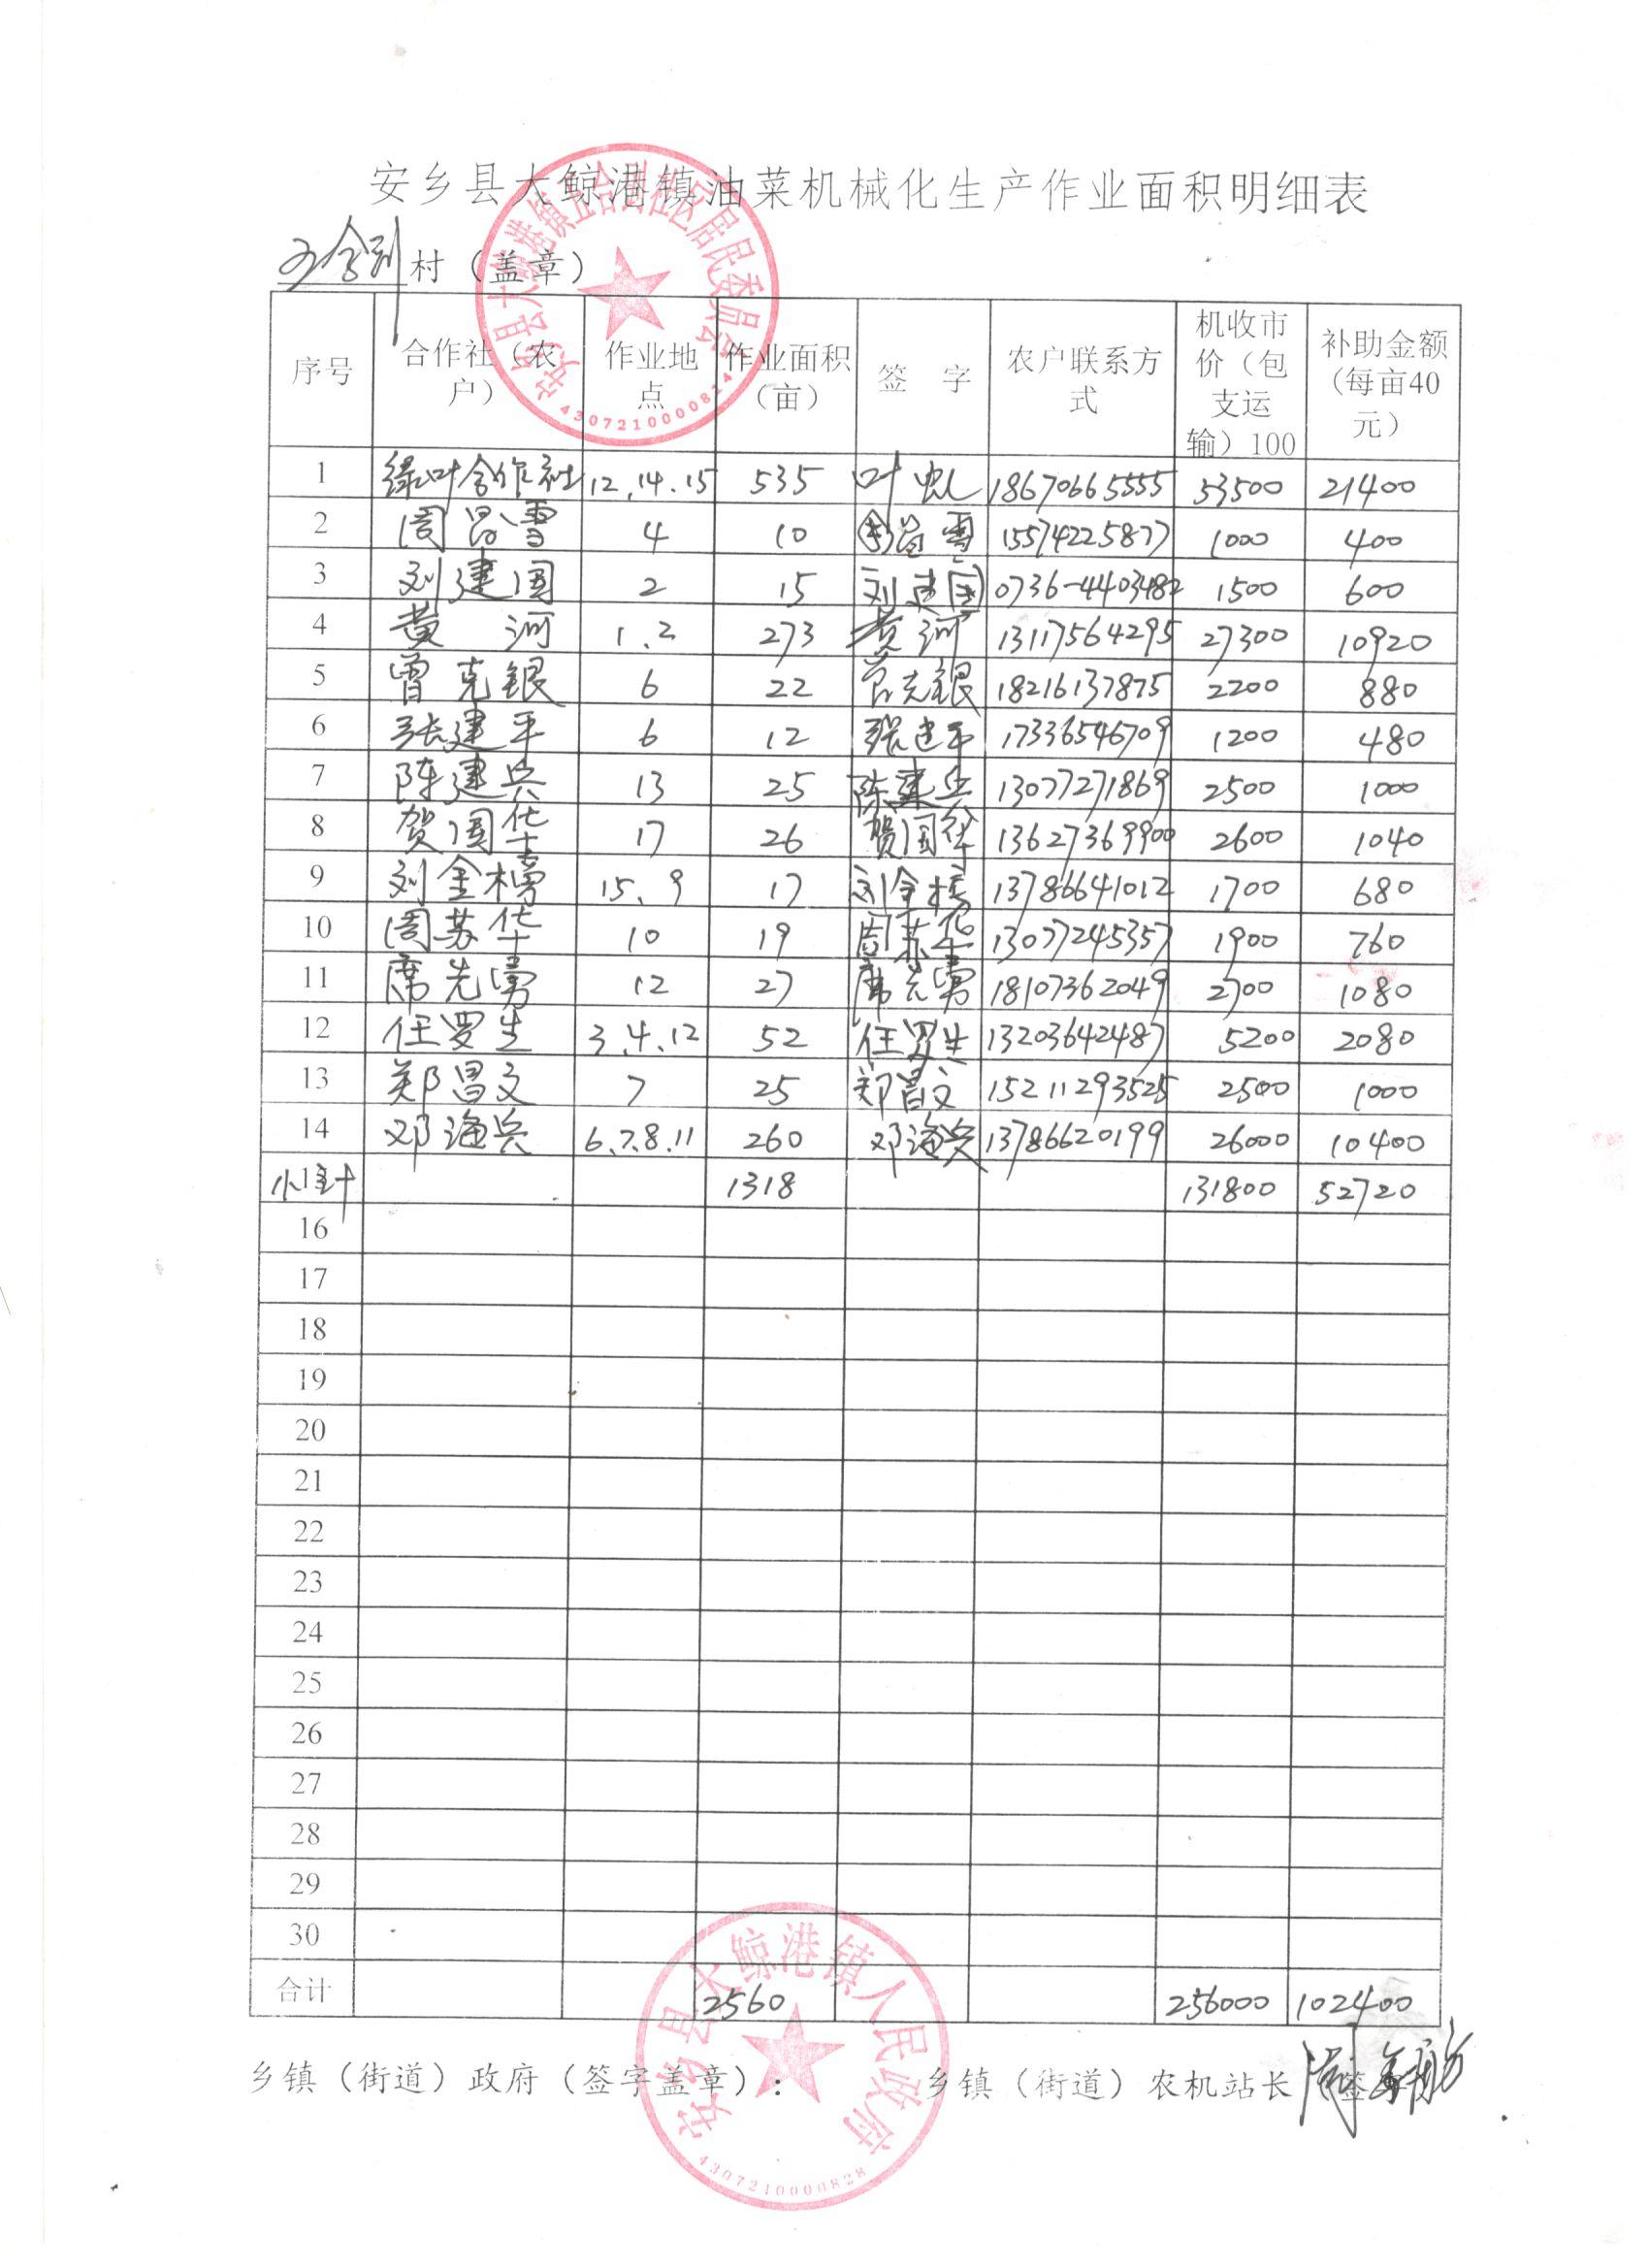 安乡县大鲸港镇油菜机械化生产作业面积明细表
五合剅村（盖章）
序号 合作社（农户） 作业地点 作业面积（亩） 签 字 农户联系方式 机收市价（包支运输）100 补助金额（每亩40元）
1 绿叶合作社 12.14.15 535 叶虬 18670665555 53500 21400
2 周昌雪 4 10 周昌雪 15574225877 1000 400
3 刘建国 2 15 刘建国 0736-4403482 1500 600
4 黄河 1.2 273 黄河 13117564295 27300 10920
5 曾克银 6 22 曾克银 18216137875 2200 880
6 张建平 6 12 张建平 17336546709 1200 480
7 陈建兵 13 25 陈建兵 13077271869 2500 1000
8 贺国华 17 26 贺国华 13627369900 2600 1040
9 刘金榜 15、9 17 刘金榜 13786641012 1700 680
10 周苏华 10 19 周苏华 13077245357 1900 760
11 席先勇 12 27 席先勇 18107362049 2700 1080
12 任罗生 3.4.12 52 任罗生 13203642487 5200 2080
13 郑昌文 7 25 郑昌文 15211293525 2500 1000
14 邓渔兵 6.7.8.11 260 邓渔兵 13786620199 26000 10400
小计 1318 131800 52720
16
17
18
19
20
21
22
23
24
25
26
27
28
29
30
合计 2560 256000 102400
乡镇（街道）政府（签字盖章）： 乡镇（街道）农机站长
安乡县大鲸港镇五合剅社区居民委员会
4307210000824
安乡县大鲸港镇人民政府
4307210000828